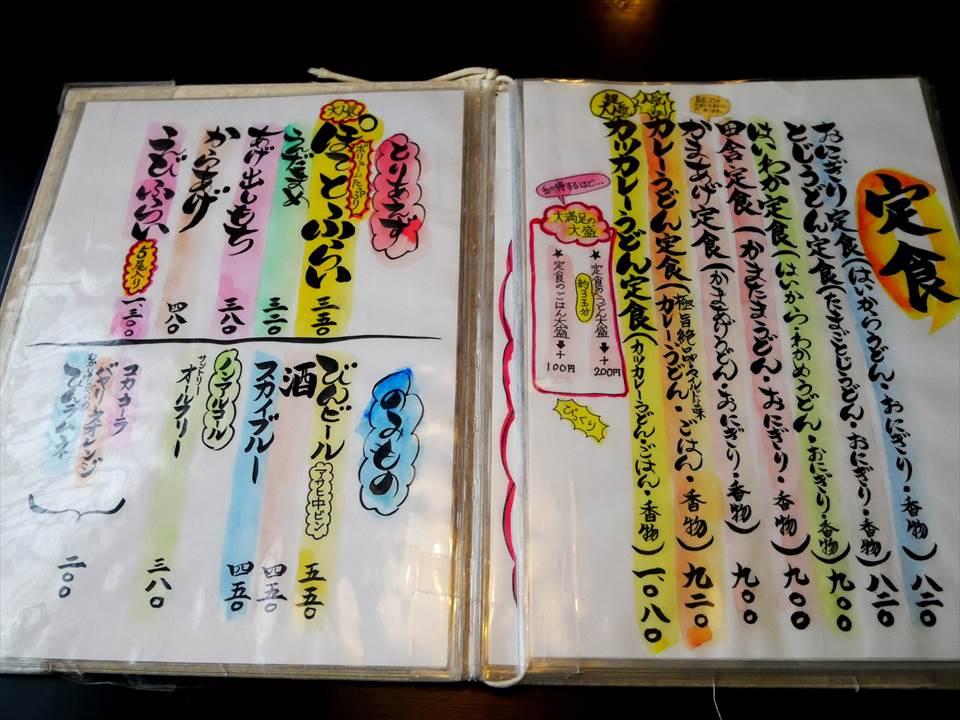 定食
おにぎり定食(はいからうどん・おにぎり・香物)八二〇
とじうどん定食(たまごとじうどん・おにぎり・香物)八二〇
はいわか定食(はいから・わかめうどん・おにぎり・香物)九〇〇
田舎定食(かまたまうどん・おにぎり・香物)九〇〇
かまあげ定食(かまあげうどん・おにぎり・香物)九〇〇
人気
カレーうどん定食(カレーうどん・ごはん・香物)九二〇
極旨絶品マイルドな味
超人気
カツカレーうどん定食(カツカレーうどん・ごはん・香物)一、〇八〇
大満足の大盛
★定食のうどん大盛➡+200円
約3玉分
★定食のごはん大盛➡+100円
びっくり
とりあえず
大人気
ボリュームたっぷり
ぽてとふらい 三三〇
えだまめ 三二〇
あげ出しもち 三八〇
からあげ 四八〇
えびふらい 5尾入り 一、三〇〇
のみもの
びんビール アサヒ中ビン 五五〇
酒 四五〇
スカイブルー 四五〇
ノンアルコール
サントリー
オールフリー 三八〇
コカ・コーラ
バヤリースオレンジ
びんラムネ
二〇〇